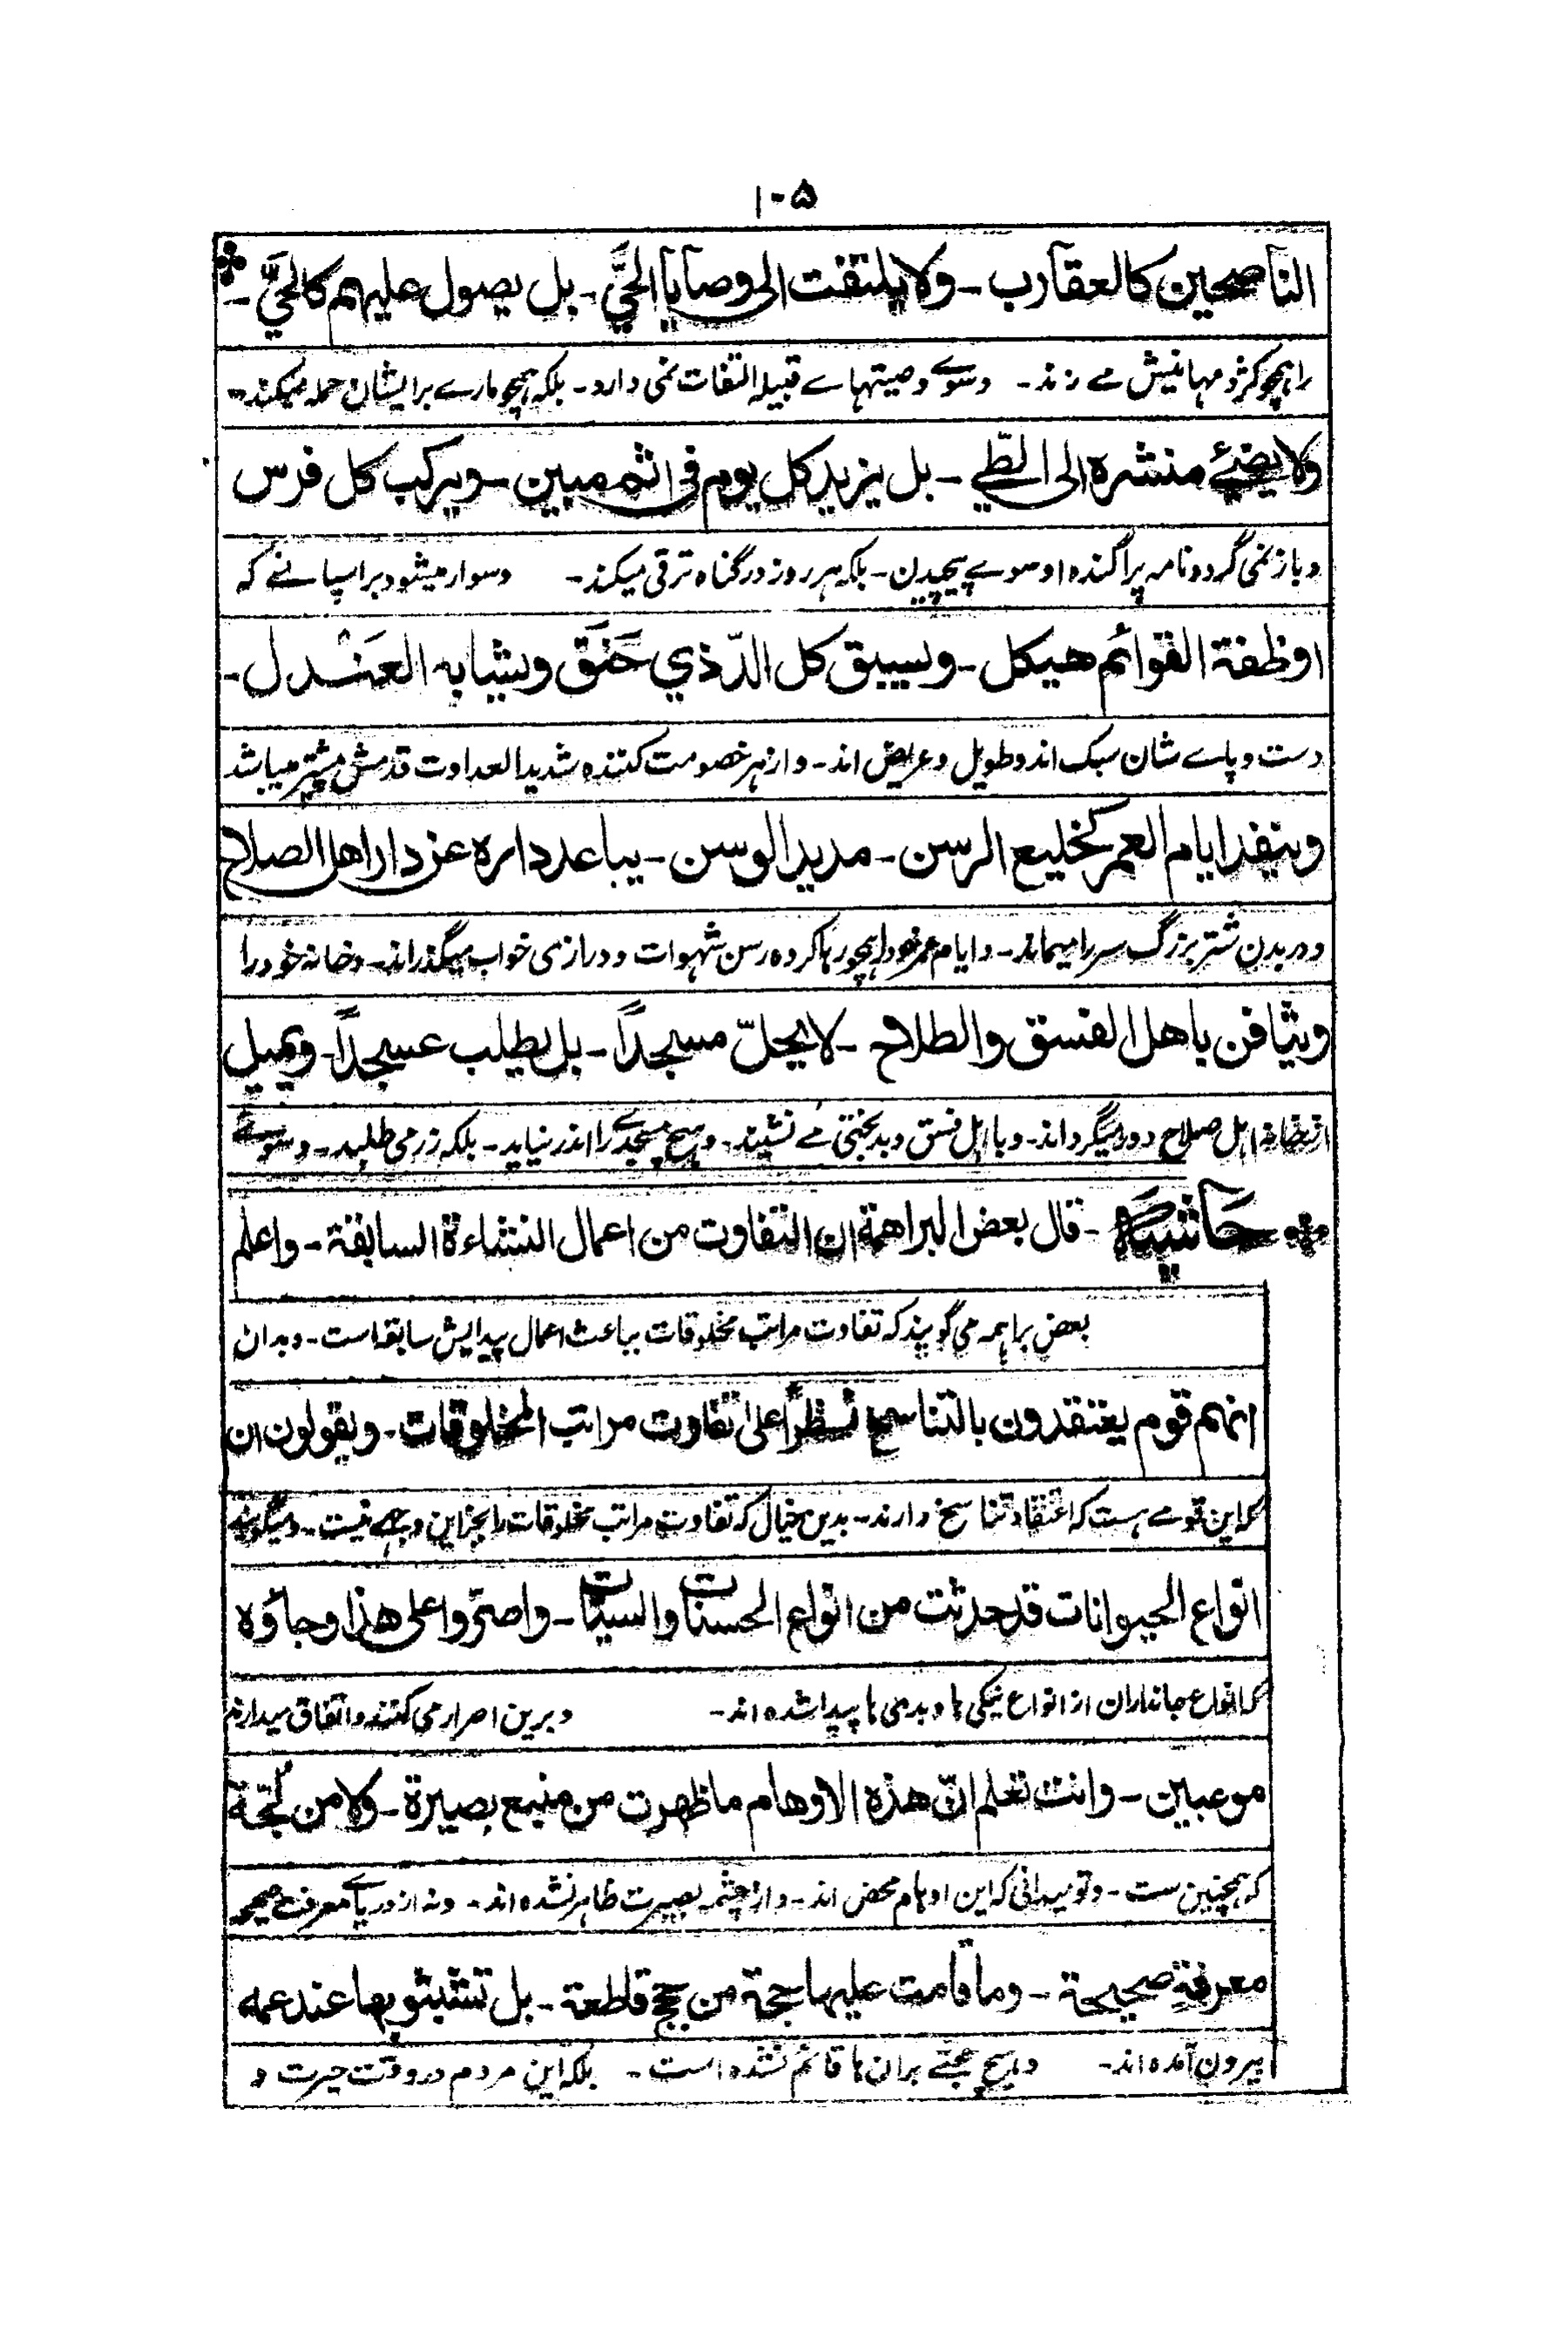 ۱۰۵
النّاصحين كالعقارب - ولا يلتفت الى وصايا الحَيّ - بل يصول عليهم كالحَيّ -
را ہمچو کژدمہا نیش مے زند - وسوئے وصیتہائے قبیلہ التفات نمی دارد - بلکہ ہمچو مارے بر ایشان حملہ میکند -
ولا يضئے منشره الى الطّي - بل يزيد كل يوم في اثم مبين - ويركب كل فرس
و باز نمی گردد نامہ پراگندہ او سوے پیچیدن - بلکہ ہر روز در گناہ ترقی میکند - و سوار میشود بر اسپانے کہ
اوظفة القوائم هيكل - ويسبق كل الدّ ذي حَنَقٍ ويشابه العَنْدل -
دست و پاے شان سبک اند و طویل و عریض اند - و از ہر خصومت کنندہ شدید العداوت قدمش پیشتر میباشد
وينفد ايام العمر كخليع الرسن - مديد الوسن - يباعد داره عن دار اهل الصلاح
و در بدن شتر بزرگ سر را میماند - و ایام عمر خود را ہمچو رہا کردہ رسن شہوات و درازی خواب میگذراند - و خانہ خود را
ويثافن باهل الفسق والطلاح - لا يحلّ مسجدًا - بل يطلب عسجدًا - ويميل
از خانہ اہل صلاح دور میگرداند - و با اہل فسق و بدبختی مے نشیند - و ہیچ مسجدے را اندر نیاید - بلکہ زر می طلبد - و سوئے
حَاشِيَة - قال بعض البراهمة ان التفاوت من اعمال النشاءة السابقة - واعلم
بعض براہمہ می گویند کہ تفاوت مراتب مخلوقات بباعث اعمال پیدایش سابقہ است - و بدان
انهم قوم يعتقدون بالتناسخ نظرًا على تفاوت مراتب المخلوقات - ويقولون ان
کہ این قومے ہست کہ اعتقاد تناسخ دارند - بدین خیال کہ تفاوت مراتب مخلوقات را بجز این وجہے نیست - و میگویند
انواع الحيوانات قد حدثت من انواع الحسنات والسيئات - واصرّوا على هذا وجاؤه
کہ انواع جانداران از انواع نیکی ہا و بدی ہا پیدا شدہ اند - و برین اصرار می کنند و اتفاق میدارند
موعبين - وانت تعلم انّ هذه الاوهام ما ظهرت من منبع بصيرة - ولا من لُجّة
کہ ہمچنین ست - و تو میدانی کہ این اوہام محض اند - و از چشمہ بصیرت ظاہر نشدہ اند - و نہ از دریائے معرفت صحیحہ
معرفةٍ صحيحة - وما قامت عليها حجة من حجج قاطعة - بل تشبثو بها عند عمه
بیرون آمدہ اند - و ہیچ حجتے بران ہا قائم نشدہ است - بلکہ این مردم در وقت حیرت و